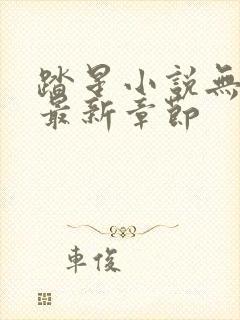 踏星小説無
最新章節
車俊